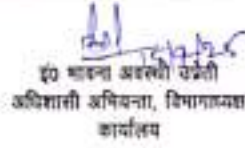 इं0 भावना अवस्थी उप्रेती
अधिशासी अभियन्ता, विभागाध्यक्ष
कार्यालय